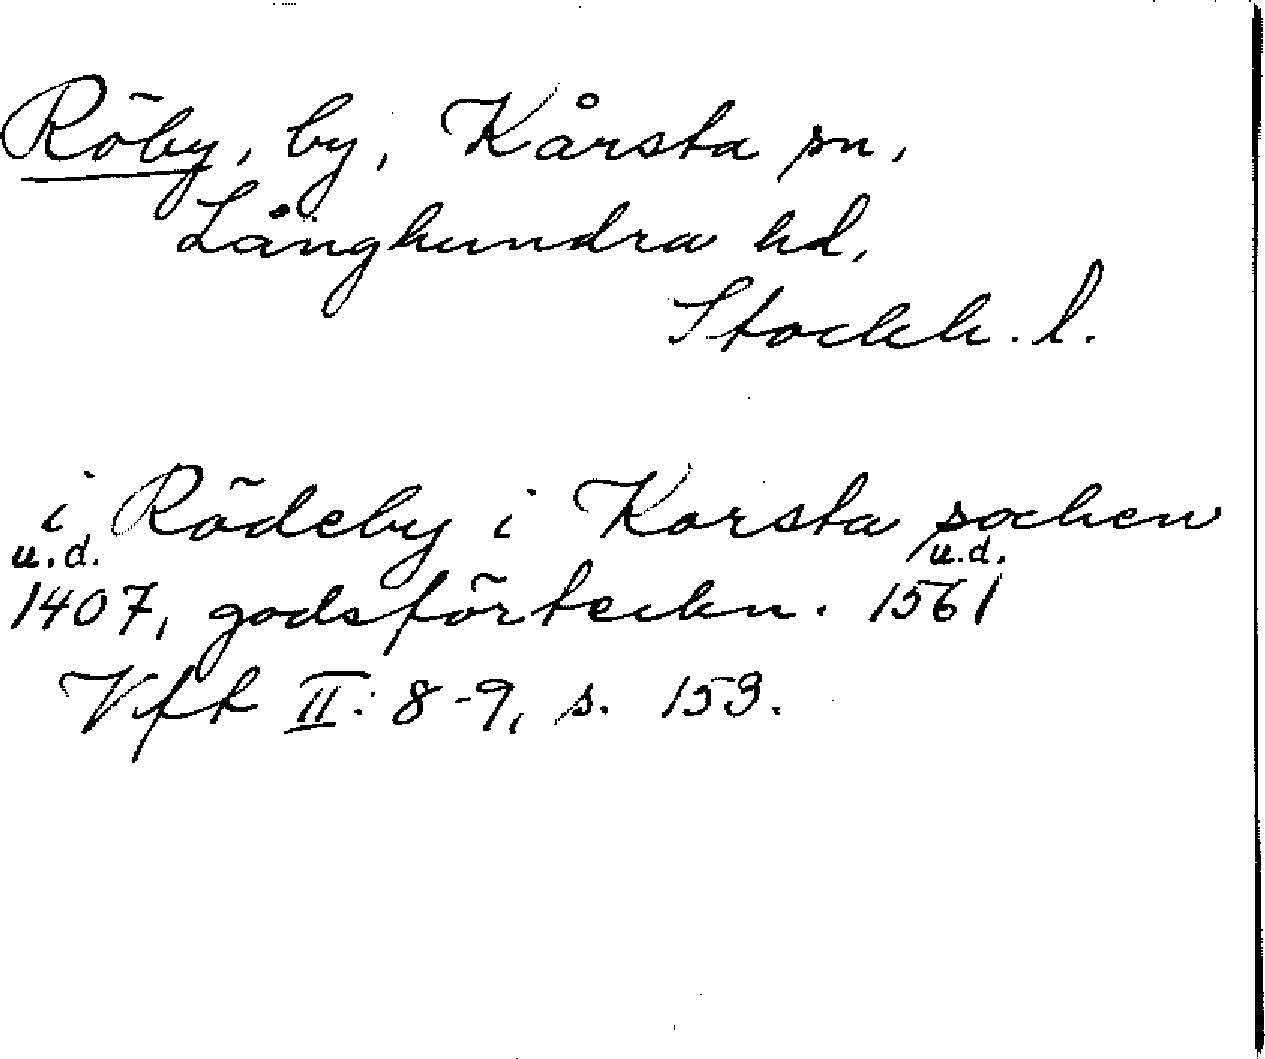 Röby, by, Kårsta sn,
Långhundra hd,
Stockh. l.
i Rödeby i Korsta sochen
u.d. u.d.
1407, godsförteckn. 1561
Vfk II: 8-9, s. 153.